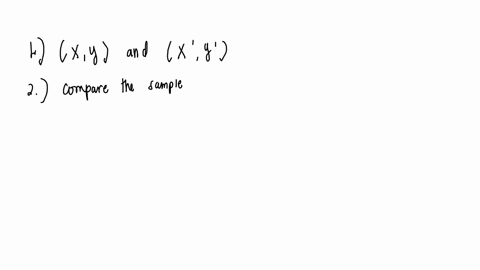 1.) (x,y) and (x',y')
2.) compare the sample